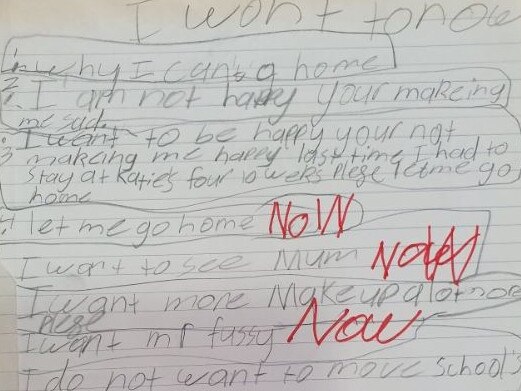 I wont to noe
1. Why I can's g home
2. I am not happy your makeing
me sad.
3. I want to be happy your not
makeing me happy last time I had to
stay at Katie's four 10 weeks Plese let me go
home
4. let me go home NOW
I want to see Mum NOW
I want more Makeup alot
Plese
I want mr fussy Now
I do not want to move school's